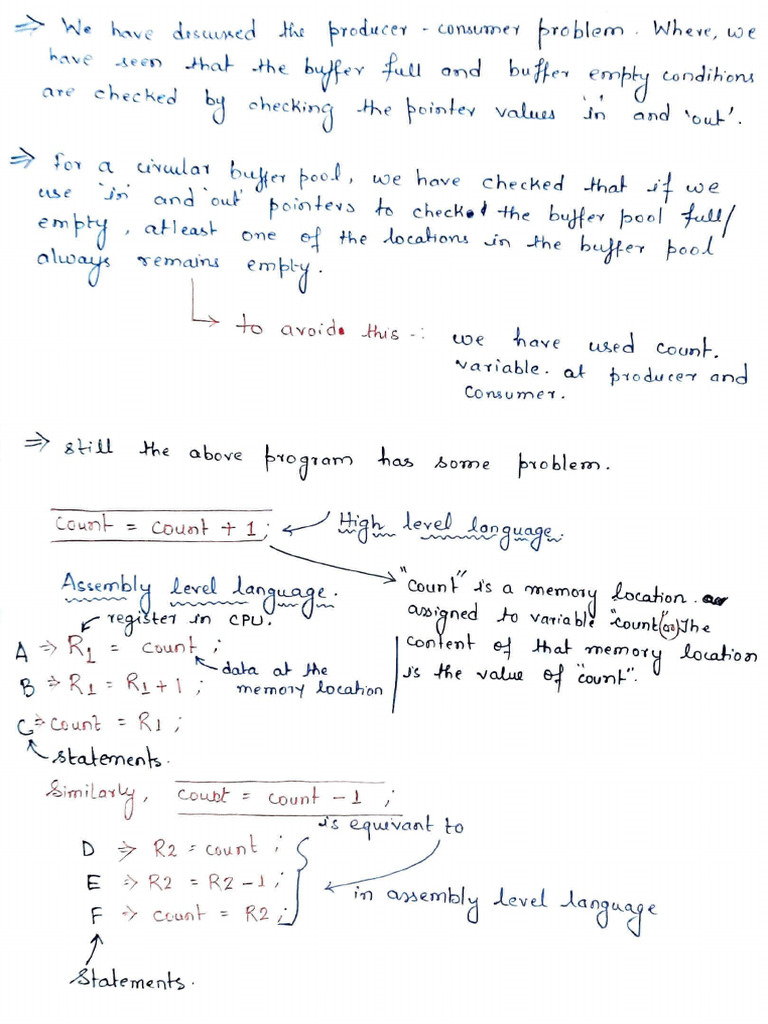 ⇒ We have discussed the producer - consumer problem. Where, we
have seen that the buffer full and buffer empty conditions
are checked by checking the pointer values 'in' and 'out'.
⇒ For a circular buffer pool, we have checked that if we
use 'in' and 'out' pointers to checked the buffer pool full/
empty, atleast one of the locations in the buffer pool
always remains empty.
to avoid this -: we have used count.
variable. at producer and
consumer.
⇒ still the above program has some problem.
count = count + 1; ← High level language.
"count" is a memory location.
assigned to variable "count" (or) The
content of that memory location
is the value of "count".
Assembly level language.
register in CPU.
A ⇒ R1 = count ;
data at the
memory location
B ⇒ R1 = R1 + 1 ;
C ⇒ count = R1 ;
statements.
Similarly, count = count - 1 ;
is equivant to
D ⇒ R2 = count ;
E ⇒ R2 = R2 - 1 ;
F ⇒ count = R2 ;
in assembly level language
statements.